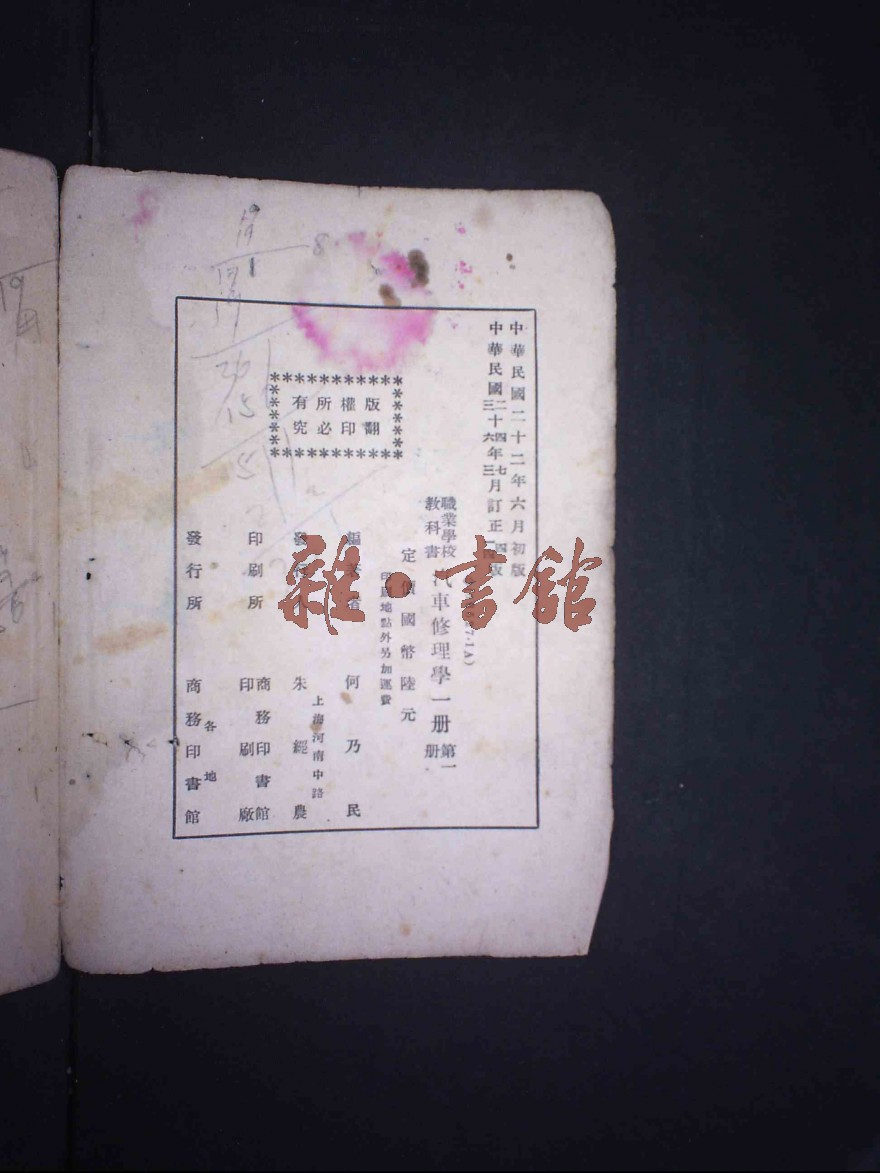 中華民國二十二年六月初版
中華民國二十四年七月訂正
三 六 三
版權所有
翻印必究
(
7·1A)
職業學校
教科書
汽車修理學一册
第一
册
定價國幣陸元
地點外另加運費
何乃民
上海河南中路
朱經農
印刷所
商務印書館
印刷廠
發行所
各地
商務印書館
雜·書館
19
8
26
15
5
19